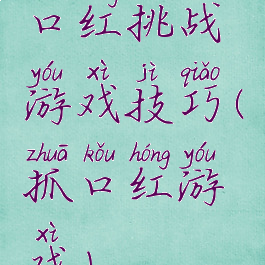 口红挑战
yóu xì jì qiǎo
游戏技巧(
zhuā kǒu hóng yóu
抓口红游
xì
戏)